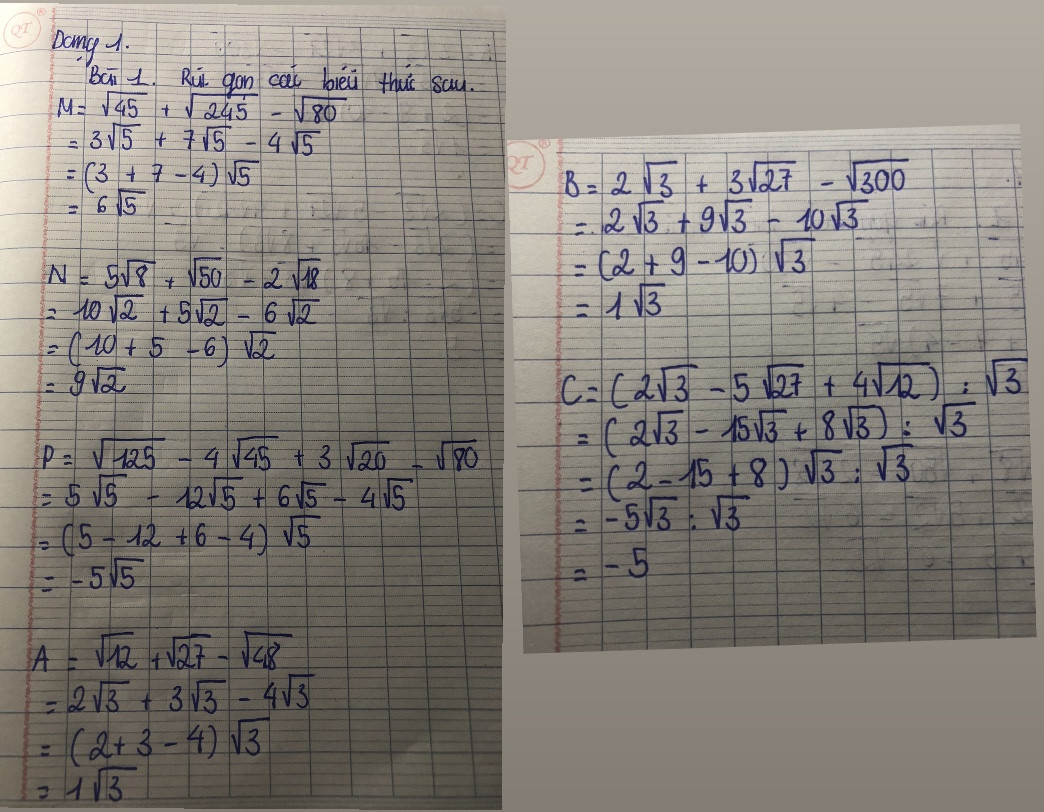 QT
Dạng 1.
Bài 1. Rút gọn các biểu thức sau.
M = √45 + √245 - √80
= 3√5 + 7√5 - 4√5
= (3 + 7 - 4) √5
= 6√5
N = 5√8 + √50 - 2√18
= 10√2 + 5√2 - 6√2
= (10 + 5 - 6) √2
= 9√2
P = √125 - 4√45 + 3√20 - √80
= 5√5 - 12√5 + 6√5 - 4√5
= (5 - 12 + 6 - 4) √5
= -5√5
A = √12 + √27 - √48
= 2√3 + 3√3 - 4√3
= (2 + 3 - 4) √3
= 1√3
QT
B = 2√3 + 3√27 - √300
= 2√3 + 9√3 - 10√3
= (2 + 9 - 10) √3
= 1√3
C = (2√3 - 5√27 + 4√12) : √3
= (2√3 - 15√3 + 8√3) : √3
= (2 - 15 + 8) √3 : √3
= -5√3 : √3
= -5